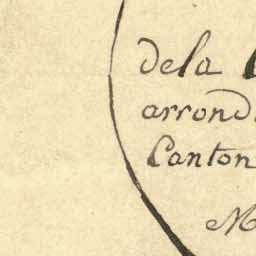 dela
arrond
Canton
M